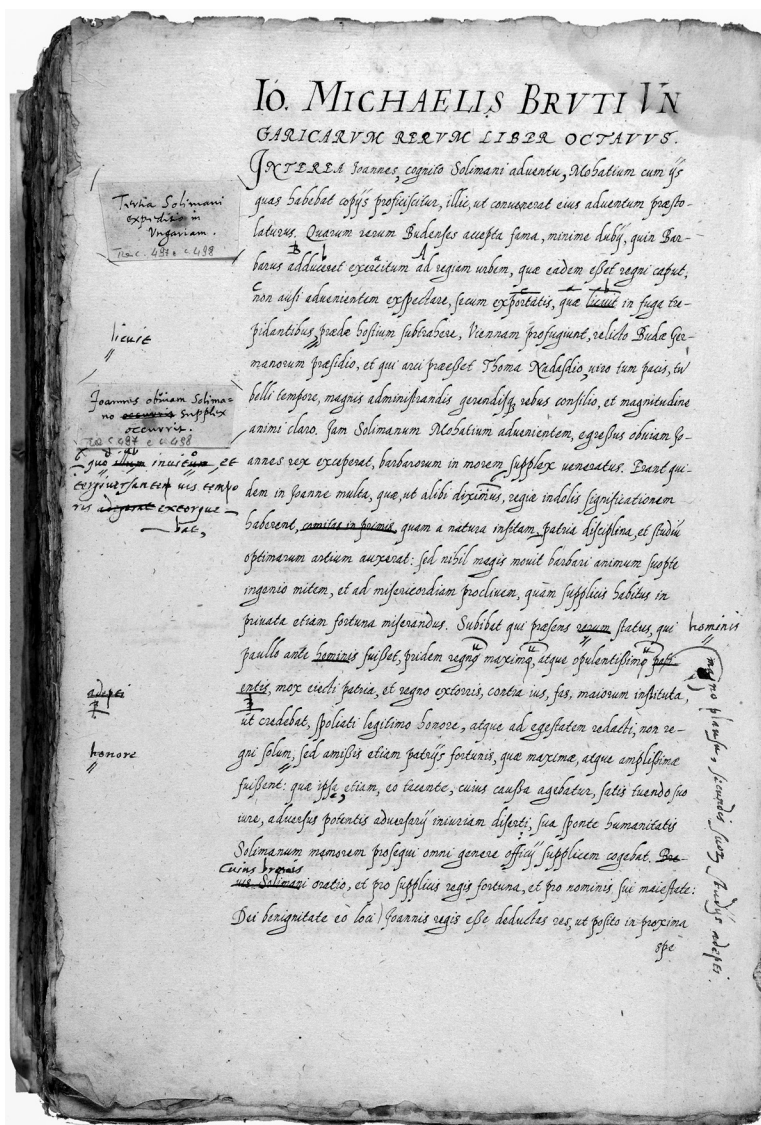 IO. MICHAELIS BRVTI VN
GARICARVM RERVM LIBER OCTAVVS.
INTEREA Joannes, cognito Solimani aduentu, Mohatium cum ijs
quas habebat copijs proficiscitur, illic, ut conuenerat eius aduentum præsto-
laturus. Quarum rerum Budenses accepta fama, minime dubij, quin Bar-
barus adduceret exercitum ad regiam urbem, quæ eadem eßet regni caput,
non ausi aduenientem exspectare, secum exportatis, quæ licuit in fuga tre-
pidantibus prædæ hostium subtrahere, Viennam profugiunt, relicto Budæ Ger-
manorum præsidio, et qui arci præeßet Thoma Nadasdio, uiro tum pacis, tũ
belli tempore, magnis administrandis gerendisq, rebus consilio, et magnitudine
animi claro. Jam Solimanum Mohatium aduenientem, egreßus obuiam Jo-
annes rex exceperat, barbarorum in morem supplex ueneratus. Erant qui-
dem in Joanne multa, quæ, ut alibi diximus, regiæ indolis significationem
haberent, comitas in primis, quam a natura insitam, patria disciplina, et studiũ
optimarum artium auxerat: sed nihil magis mouit barbari animum suopte
ingenio mitem, et ad misericordiam procliuem, quàm supplicis habitus in
priuata etiam fortuna miserandus. Subibat qui præsens rerum status, qui
paullo ante hominis fuißet, pridem regno maximo, atque opulentißimo poti-
entis, mox eiecti patria, et regno extorris, contra ius, fas, maiorum instituta,
ut credebat, spoliati legitimo honore, atque ad egestatem redacti, non re-
gni solum, sed amißis etiam patrijs fortunis, quæ maximæ, atque amplißimæ
fuißent: quæ ipsa etiam, eo tacente, cuius caußa agebatur, satis tuendo suo
iure, aduersus potentis aduersarij iniuriam diserti, sua sponte humanitatis
Solimanum memorem prosequi omni genere officij supplicem cogebat. Bre-
Cuius breuis
uis Solimani oratio, et pro supplicis regis fortuna, et pro nominis sui maiestate:
Dei benignitate eò loci Joannis regis eße deductas res, ut posito in proxima
spe
Tertia Solimani
expeditio in
Vngariam.
licuit
Joannes obuiam Solima-
no occurris supplex
occurris.
quo illum inuitum, et
tergiuersantem uis tempo
ris adgerat extorque-
bat,
adepti
honore
hominis
magno plausu, secundis suorum studijs adepti.